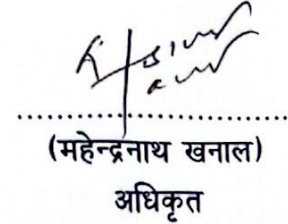 (महेन्द्रनाथ खनाल)
अधिकृत